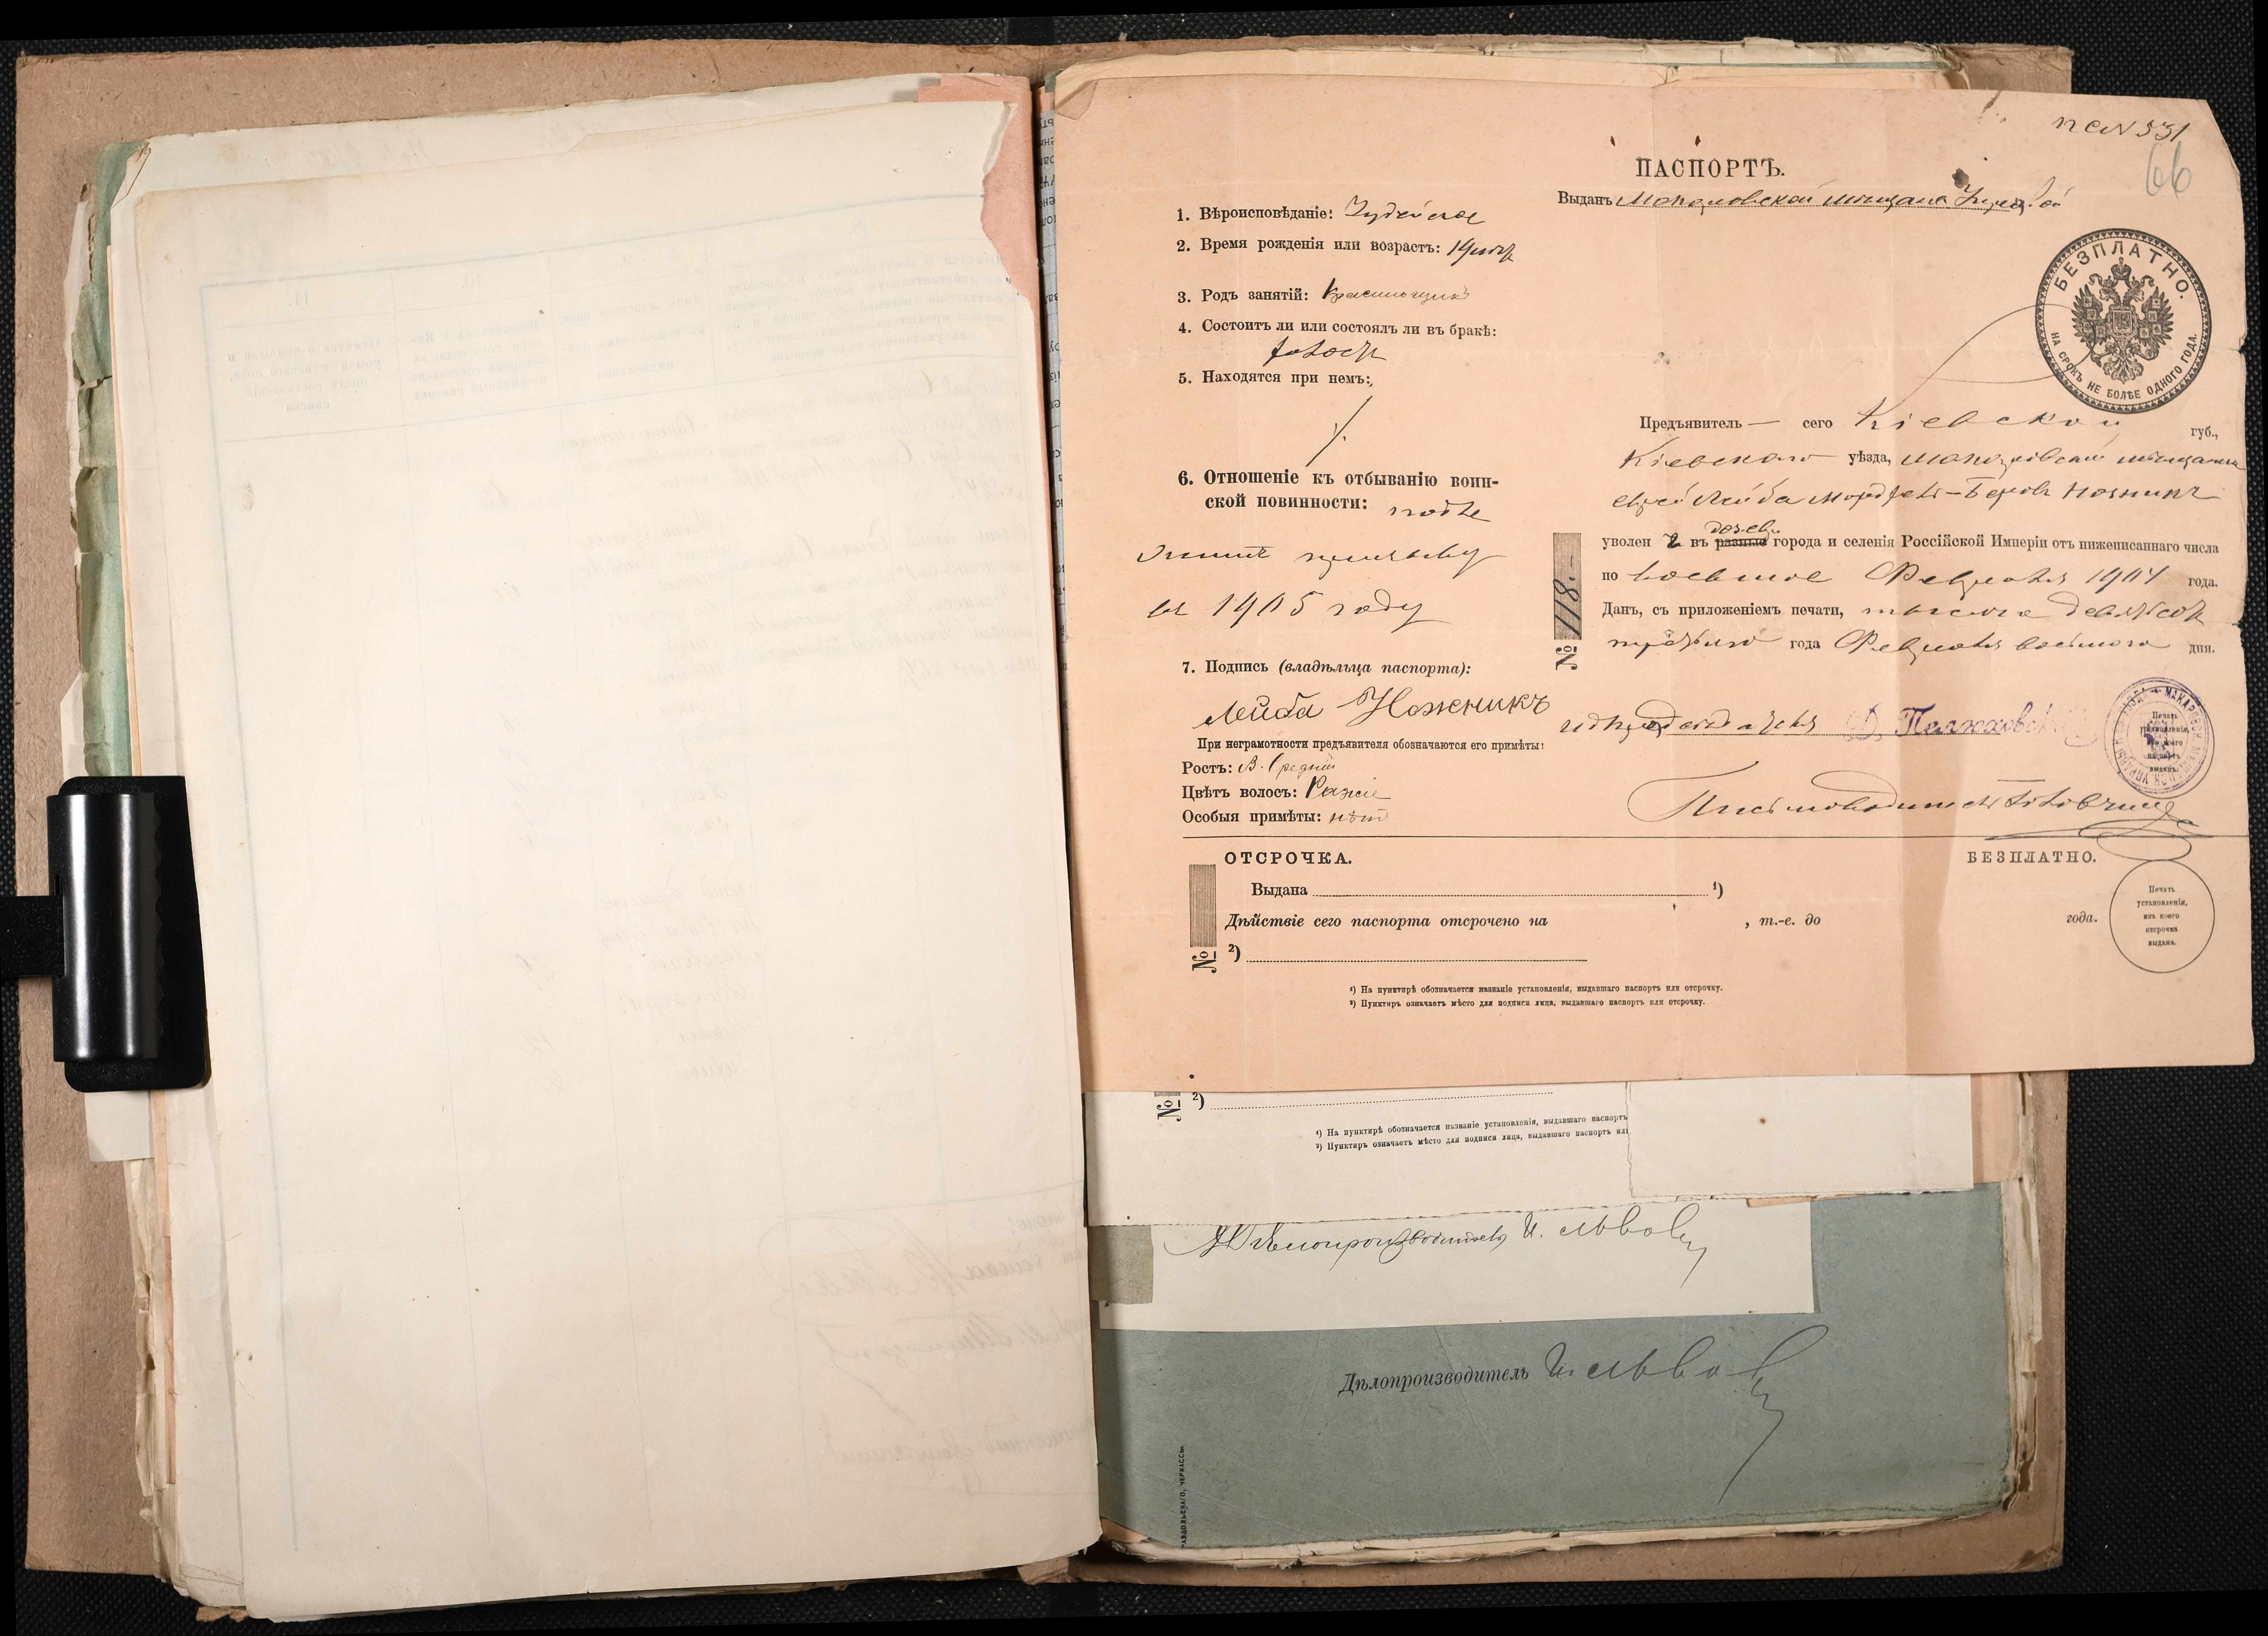 66
ПАСПОРТЪ.
Выданъ Макаровской мѣщанск. Управой
1. Вѣроисповѣданіе: Іудейское
2. Время рожденія или возрастъ: 19 лѣтъ
3. Родъ занятій: Красильщикъ
4. Состоитъ ли или состоялъ ли въ бракѣ:
холостъ
5. Находятся при немъ:
6. Отношеніе къ отбыванію воин-
ской повинности: подле
житъ призыву
въ 1905 году
7. Подпись (владѣльца паспорта):
Лейба Ножникъ
При неграмотности предъявителя обозначаются его примѣты:
Ростъ: В. Средній
Цвѣтъ волосъ:
Особыя примѣты: нѣтъ
БЕЗПЛАТНО.
НА СРОКЪ НЕ БОЛѢЕ ОДНОГО ГОДА.
Предъявитель — сего Кіевской губ.,
Кіевскаго уѣзда, Макаровскій мѣщанинъ
еврей Лейба Ножникъ
уволен ъ въ разные дозвол. города и селенія Россійской Имперіи отъ нижеписаннаго числа
по восьмое Февраля 1904 года.
Данъ, съ приложеніемъ печати, тысяча девятсотъ
третьяго года Февраля восьмого дня.
№ 118.
Печать установленія, изъ коего паспортъ выданъ.
Письмоводитель
ОТСРОЧКА.
БЕЗПЛАТНО.
Выдана ¹)
Дѣйствіе сего паспорта отсрочено на , т.-е. до года.
№ ²)
Печать
установленія,
изъ коего
отсрочка
выдана.
¹) На пунктирѣ обозначается названіе установленія, выдавшаго паспортъ или отсрочку.
²) Пунктиръ означаетъ мѣсто для подписи лица, выдавшаго паспортъ или отсрочку.
№ ²)
¹) На пунктирѣ обозначается названіе установленія, выдавшаго паспортъ
²) Пунктиръ означаетъ мѣсто для подписи лица, выдавшаго паспортъ или
Дѣлопроизводитель И. Львов
Дѣлопроизводитель И. Львов